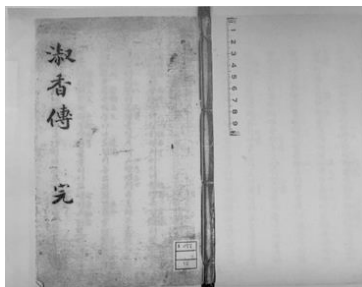 淑香傳 完
1 2 3 4 5 6 7 8 9